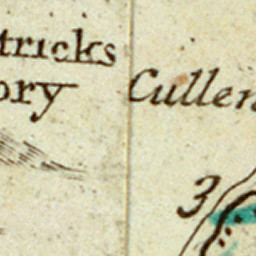 tricks
ory
Cullen
3